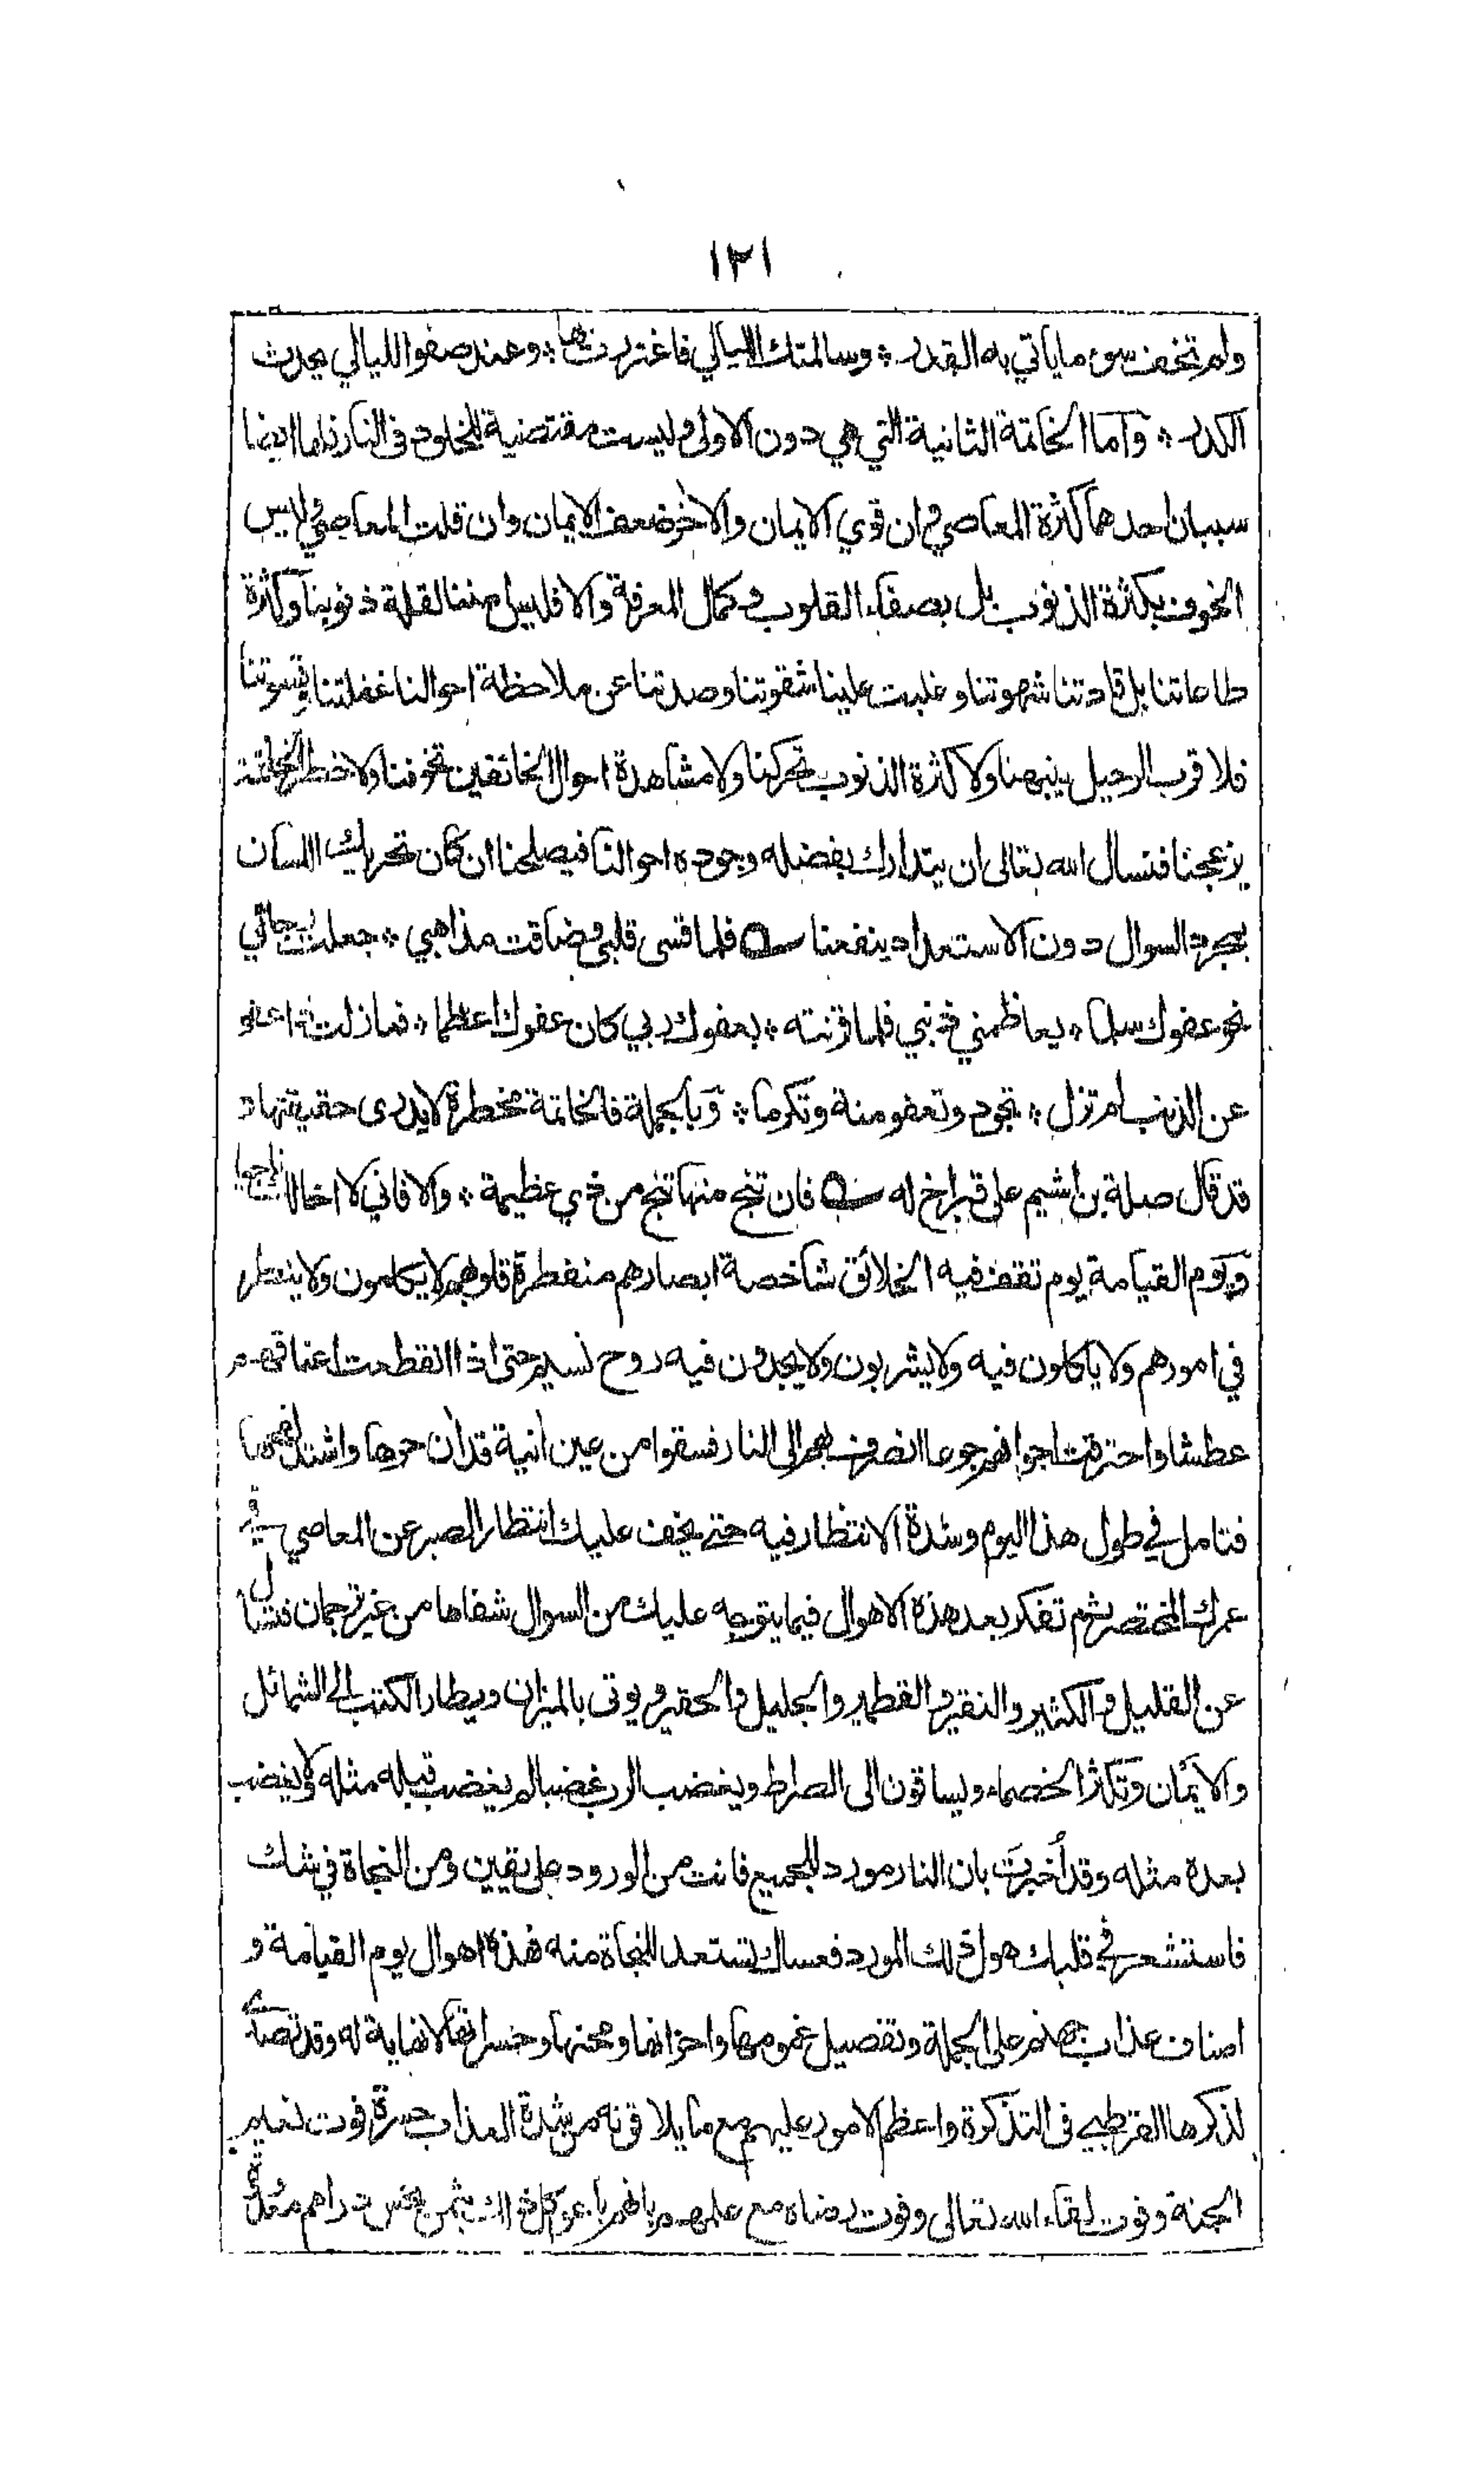 ١٢١
ولم تخف سوء ما ياتي به القدر ؞ وسالمتك الليالي فاغتررت بها ؞ وعند صفو الليالي يحدث
الكدر ؞ وآما الخاتمة الثانية التي هي دون الاولى وليست مقتضية للخلود في النار فلها ايضا
سببان احدهما كثرة المعاصي وان قوي الايمان والاخر ضعف الايمان وان قلت المعاصي وليس
الخوف بكثرة الذنوب بل بصفاء القلوب وكمال المعرفة والا فليس امننا لقلة ذنوبنا وكثرة
طاعاتنا بل قادتنا شهوتنا وغلبت علينا شقوتنا وصدتنا عن ملاحظة احوالنا غفلتنا وقسوتنا
فلا قرب الرحيل ينبهنا ولا كثرة الذنوب تحركنا ولا مشاهدة احوال الخائفين تخوفنا ولا خطر الخاتمة
يزعجنا فنسال الله تعالى ان يتدارك بفضله وجوده احوالنا فيصلحنا ان كان تحريك اللسان
بمجرد السوال دون الاستعداد ينفعنا فلما قسى قلبي وضاقت مذاهبي ؞ جعلت رجائي
نحو عفوك سلما ؞ يعاظمني ذنبي فلما قرنته ؞ بعفوك ربي كان عفوك اعظما ؞ فما زلت ذا عفو
عن الذنب لم تزل ؞ تجود وتعفو منة وتكرما ؞ وبالجملة فالخاتمة مخطرة لايدرى حقيقتها و
قد قال صلة بن اشيم على قبر اخ له فان تنج منها تنج من ذي عظيمة ؞ والا فاني لا اخالك ناجيا
ويوم القيامة يوم تقف فيه الخلائق شاخصة ابصارهم منفطرة قلوبهم لايكلمون ولا ينظر
في امورهم ولا ياكلون فيه ولا يشربون ولا يجدون فيه روح نسيم حتى اذا انقطعت اعناقهم
عطشا واحترقت اجوافهم جوعا انصرف بهم الى النار فسقوا من عين انية قد ان حرها واشتد لفحها
فتامل في طول هذا اليوم وشدة الانتظار فيه حتى يخف عليك انتظار الصبر عن المعاصي في
عمرك المختصر ثم تفكر بعد هذه الاهوال فيما يتوجه عليك من السوال شفاها من غير ترجمان فتسأل
عن القليل والكثير والنقير والقطمير والجليل والحقير ويوتى بالميزان ويطار الكتب الى الشمائل
والايمان وتكثر الخصماء ويساقون الى الصراط ويغضب الرب غضبا لم يغضب قبله مثله ولا يغضب
بعده مثله وقد أخبرت بان النار مورد للجميع فانت من الورود على يقين ومن النجاة في شك
فاستشعر في قلبك هول ذلك المورد فعساك تستعد للنجاة منه فهذه اهوال يوم القيامة و
اصناف عذاب جهنم على الجملة وتفصيل غمومها واحزانها ومحنها وخسرانها لا نهاية له وقد تصدى
لذكرها القرطبي في التذكرة واعظم الامور عليهم مع ما يلاقونه من شدة العذاب حسرة فوت نعيم
الجنة وفوت لقاء الله تعالى وفوت رضاه مع علمهم بانهم باعو كل ذلك بثمن بخس دراهم معدودة